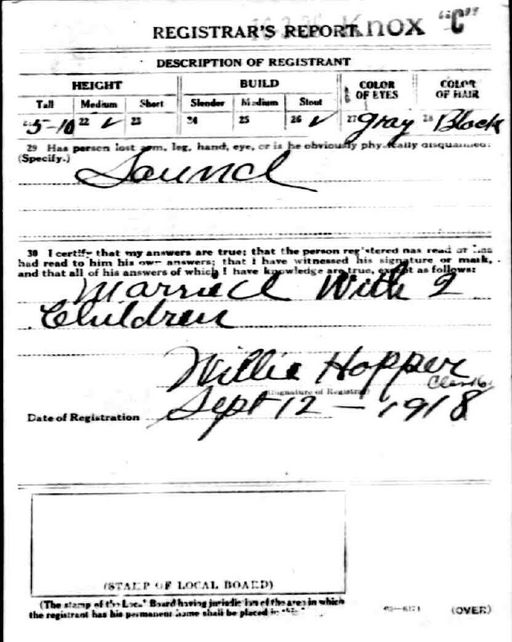 REGISTRAR'S REPORT Knox "C"
DESCRIPTION OF REGISTRANT
HEIGHT BUILD COLOR OF EYES COLOR OF HAIR
Tall Medium Short Slender Medium Stout
5-10 22 ✓ 23 24 25 26 ✓ 27 Gray 28 Black
29 Has person lost arm, leg, hand, eye, or is he obviously physically disqualified?
(Specify.) Sound
30 I certify that my answers are true; that the person registered has read or has
had read to him his own answers; that I have witnessed his signature or mark,
and that all of his answers of which I have knowledge are true, except as follows:
Married With 2
Children
Willie Hopper
(Signature of Registrar)
Date of Registration Sept 12 - 1918
(STAMP OF LOCAL BOARD)
(The stamp of the Local Board having jurisdiction of the area in which
the registrant has his permanent home shall be placed in
(OVER)